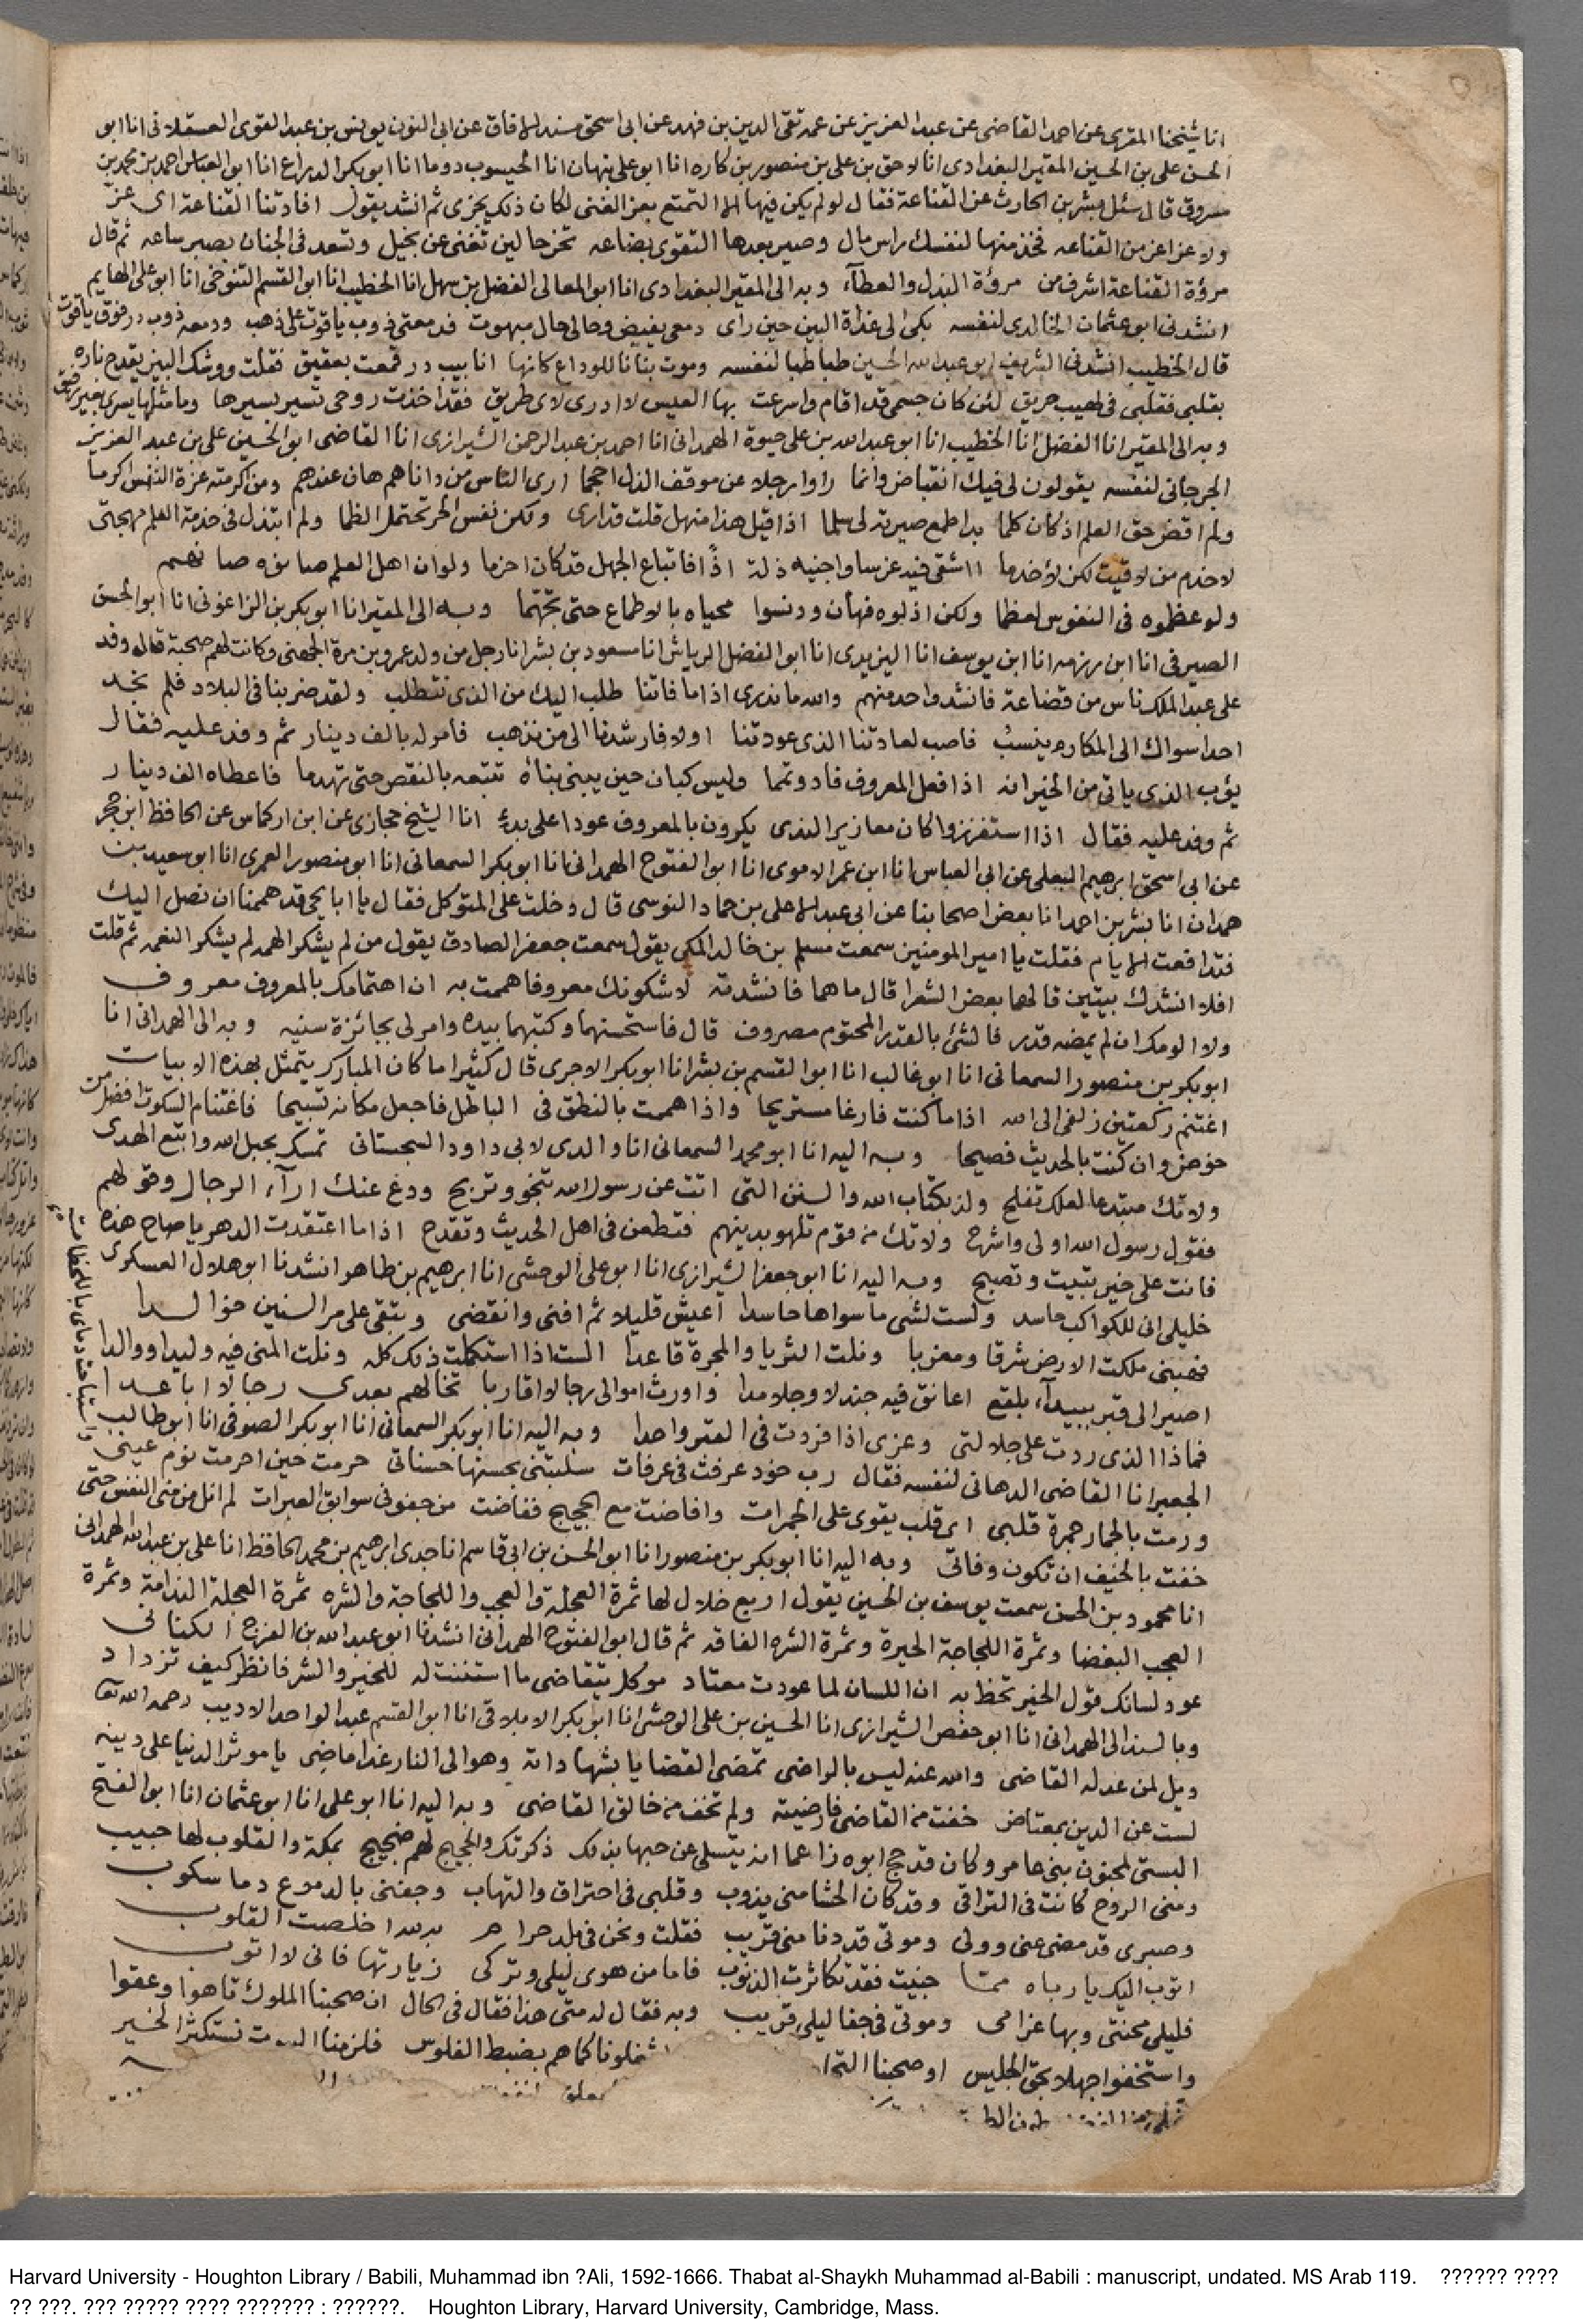 انا شيخنا المقرى عن احمد القاضى عن عبد العزيز عن عمه تقى الدين بن فهد عن ابى اسحق مسند الافاق عن ابى النون يونس بن عبد القوى العسقلانى انا ابو
الحسن على بن الحسين المقير البغدادى انا لاحق بن على بن منصور بن كاره انا ابو على بن نبهان انا الحيسوب دوما انا ابو بكر الدراع انا ابو العباس احمد بن محمد بن
مسروق قال سئل بشر بن الحارث عن القناعة فقال لو لم يكن فيها الا التمتع بعز الغنى لكان ذلك يجزى ثم انشد يقول افادتنا القناعة اى عز
ولا عزا عز من القناعه فخذ منها لنفسك راس مال وصير بعدها التقوى بضاعه تحز حالين تغنى عن بخيل وتسعد فى الجنان بصبر ساعه ثم قال
مروة القناعة اشرف من مروة البذل والعطآء وبه الى المقير البغدادى انا ابو المعالى الفضل بن سهل انا الخطيب انا ابو القسم التنوخى انا ابو على الهايم
انشدنى ابو عثمان الخالدى لنفسه بكى الى غداة البين حين راى دمعى يفيض وحالى حال مبهوت فدمعتى ذوب ياقوت على ذهب ودمعه ذوب در فوق ياقوت
قال الخطيب انشدنى الشريف ابو عبد الله الحسين طباطبا لنفسه ومدت بنانا للوداع كانها انابيب در قمعت بعقيق فقلت ووشك البين يقدح ناره
بقلبى فقلبى فى لهيب حريق لئن كان جسمى قد اقام واسرعت بها العيس لا ادرى لاى طريق فقد اخذت روحى تسير بسيرها وما مثلها يسرى بغير رفيق
وبه الى المقير انا الفضل انا الخطيب انا ابو عبد الله بن على حيوة الهمدانى انا احمد بن عبد الرحمن الشيرازى انا القاضى ابو الحسين على بن عبد العزيز
الجرجانى لنفسه يقولون لى فيك انقباض وانما راوا رجلا عن موقف الذل احجما ارى الناس من داناهم هان عندهم ومن اكرمته عزة النفس اكرما
ولم اقض حق العلم اذ كان كلما بدا طمع صيرته لى سلما اذا قيل هذا منهل قلت قد ارى ولكن نفس الحر تحتمل الظما ولم ابتذل فى خدمة العلم مهجتى
لاخدم من لاقيت لكن لأخدما ااشقى فيه غرسا واجنيه ذلة اذًا فاتباع الجهل قد كان احزما ولو ان اهل العلم صانوه صانهم
ولو عظموه فى النفوس لعظما ولكن اذلوه فهان ودنسوا محياه بالاطماع حتى تجهما وبه الى المقير انا ابو بكر بن الزاغونى انا ابو الحسن
الصيرفى انا ابن رزمه انا ابن يوسف انا اليزيدى انا ابو الفضل الرياشى انا مسعود بن بشر انا رجل من ولد عمرو بن مرة الجهنى وكانت لهم صحبة قال وفد
على عبد الملك ناس من قضاعة فانشد واحد منهم والله ما ندرى اذا ما فاتنا طلب اليك من الذى نتطلب ولقد ضربنا فى البلاد فلم نجد
احدا سواك الى المكارم ينسبُ فاصب لعادتنا الذى عودتنا اولا فارشدنا الى من نذهب فامر له بالف دينار ثم وفد عليه فقال
يؤب الذى ياتى من الخير انه اذا فعل المعروف قاد وتمما وليس كبان حين يبنى بناؤه تتبعه بالنقص حتى تهدما فاعطاه الف دينار
ثم وفد عليه فقال اذا استغزروا كان معازير الندى يكرون بالمعروف عودا على بدء انا الشيخ حجازى عن ابن اركماس عن الحافظ ابن حجر
عن ابى اسحق ابرهيم البعلى عن ابى العباس انا ابن عمر الاموى انا ابو الفتوح الهمدانى انا ابو بكر السمعانى انا ابو منصور العمرى انا ابو سعيد بن
همدان انا بشر بن احمد انا بعض اصحابنا عن ابى عبد الاعلى بن حماد النوسى قال دخلت على المتوكل فقال يا ابا يحيى قد هممنا ان نصل اليك
فتدافعت الايام فقلت يا امير المومنين سمعت مسلم بن خالد المكى يقول سمعت جعفر الصادق يقول من لم يشكر الهمه لم يشكر النعمه ثم قلت
افلا انشدك بيتين قالهما بعض الشعرا قال ما هما فانشدته لاشكرنك معروفا هممت به ان اهتمامك بالمعروف معروف
ولا الومك ان لم يمضه قدر فالشئ بالقدر المحتوم مصروف قال فاستحسنهما وكتبهما بيده وامر لى بجائزة سنيه وبه الى الهمدانى انا
ابو بكر بن منصور السمعانى انا ابو غالب انا ابو القسم بن بشر انا ابو بكر الاجرى قال كثيرا ما كان المبارك يتمثل بهذه الابيات
اغتنم ركعتين زلفى الى الله اذا ما كنت فارغا مستريحا واذا هممت بالنطق فى الباطل فاجعل مكانه تسبيحا فاغتنام السكوت افضل من
خوض وان كنت بالحديث فصيحا وبه اليه انا ابو محمد السمعانى انا والدى لابى داود السجستانى تمسك بحبل الله واتبع الهدى
ولا تك مبتدعا لعلك تفلح ولذ بكتاب الله والسنن التى اتت عن رسول الله تنجو وتربح ودع عنك ارآء الرجال وقولهم
فقول رسول الله اولى واشرح ولا تك من قوم تلهو بدينهم فتطعن فى اهل الحديث وتقدح اذا ما اعتقدت الدهر يا صاح هذه
فانت على خير تبيت وتصبح وبه اليه انا ابو جعفر الشيرازى انا ابو على الوحشى انا ابرهيم بن طاهر انشدنا ابو هلال العسكرى
خليلى انى للكواكب حاسد ولست لشى ما سواها حاسدا اعيش قليلا ثم افنى وانقضى وتبقى على مر السنين خوالدا
فهبنى ملكت الارض شرقا ومغربا ونلت الثريا والمجرة قاعدا الست اذا استكملت ذلك كله ونلت المنى فيه وليدا ووالدا
اصير الى قبر ببيدآء بلقع اعانق فيه جندلا وجلامدا واورث اموالى رجالا اقاربا تخالهم بعدى رجالا اباعدا
فماذا الذى ردت على جلالتى وعزى اذا فردت فى القبر واحدا وبه اليه انا ابو بكر السمعانى انا ابو بكر الصوفى انا ابو طالب
الجعبر انا القاضى الدهانى لنفسه فقال رب خود عرفت فى عرفات سلبتنى بحسنها حسناتى حرمت حين احرمت نوم عينى
واستباحت دماى باللحظات
ورمت بالجمار جمرة قلبى اى قلب يقوى على الجمرات وافاضت مع الحجيج ففاضت من جفونى سوابق العبرات لم انل من منى النفس حتى
خفت بالخيف ان تكون وفاتى وبه اليه انا ابو بكر بن منصور انا ابو الحسن بن ابى قاسم انا جدى ابرهيم بن محمد الحافظ انا على بن عبد الله الهمدانى
انا محمود بن الحسن سمعت يوسف بن الحسين يقول اربع خلال لها ثمرة العجلة والعجب واللجاجة والشره ثمرة العجلة الندامة وثمرة
العجب البغضا وثمرة اللجاجة الحيرة وثمرة الشره الفاقه ثم قال ابو الفتوح الهمدانى انشدنا ابو عبد الله بن الفرج الكنانى
عود لسانك قول الخير تحظ به ان اللسان لما عودت معتاد موكل بتقاضى ما استننت له للخير والشر فانظر كيف تزداد
وبالسند الى الهمدانى انا ابو حفص الشيرازى انا الحسين بن على الوحشى انا ابو بكر الاملاقى انا ابو القسم عبد الواحد الاديب رحمه الله تعا
ويل لمن عدله القاضى والله عنه ليس بالراضى تمضى القضايا بشهاداته وهو الى النار غدا ماضى يا موثر الدنيا على دينه
لست عن الدين بمعتاض خفت من القاضى فارضيته ولم تخف من خالق القاضى وبه اليه انا ابو على انا ابو عثمان انا ابو الفتح
البستى لمجنون بنى عامر وكان قد حج ابوه زاعما انه يتسلى عن حبها بذلك ذكرتك والحجيج لهم ضجيج بمكة والقلوب لها حبيب
ومنى الروح كانت فى التراقى وقد كان الحشا منى يذوب وقلبى فى احتراق والتهاب وجفنى بالدموع دما سكوب
وصبرى قد مضى عنى وولى وموتى قد دنا منى قريب فقلت ونحن فى بلد حرام به لله اخلصت القلوب
اتوب اليك يا رباه مما جنيت فقد تكاثرت الذنوب فاما من هوى ليلى وتركى زيارتها فانى لا اتوب
فليلى محنتى وبها غرامى وموتى فى جفا ليلى قريب وبه فقال له متى هذا فقال فى الحال ان صحبنا الملوك تاهوا وعقوا
واستخفوا جهلا بحق الجليس او صحبنا التجا شغلونا كما هم بضبط الفلوس فلزمنا البيوت نستكثر الخير